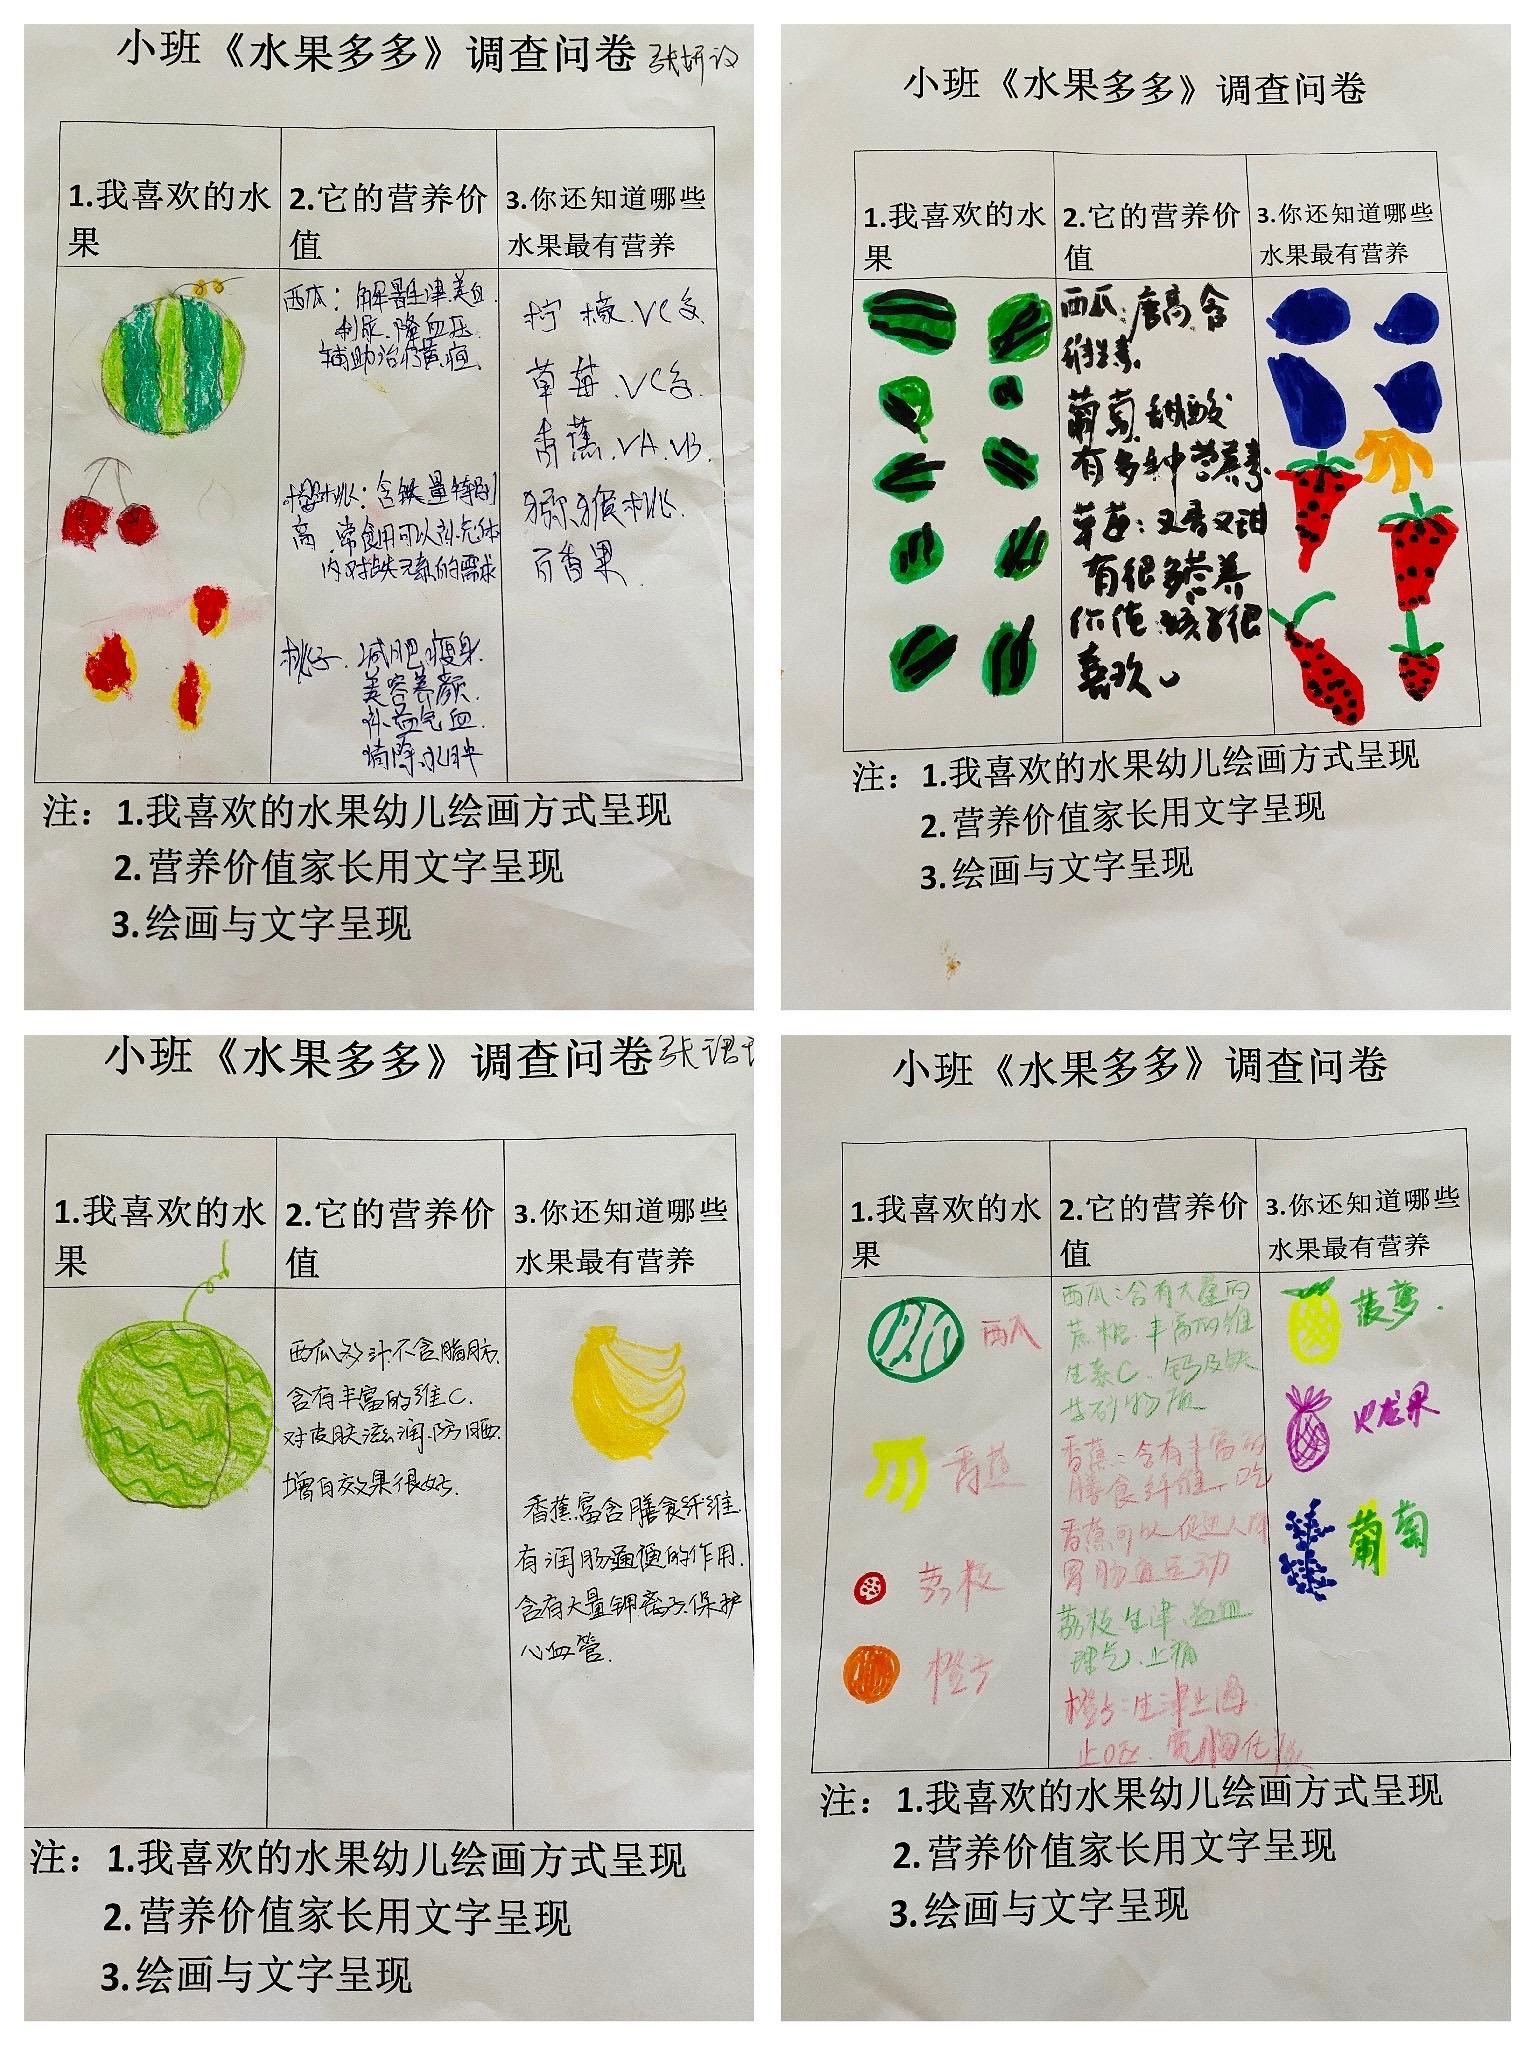 小班《水果多多》调查问卷
1.我喜欢的水
果
2.它的营养价
值
3.你还知道哪些
水果最有营养
西瓜：解暑生津.美白.
利尿.降血压.
辅助治疗黄疸.
樱桃：含铁量特别
高.常食用可以补充体
内对铁元素的需求
桃子.减肥瘦身.
美容养颜.
补益气血.
消除水肿
柠檬.VC多.
草莓.VC多.
香蕉.VA.VB.
猕猴桃.
百香果.
注：1.我喜欢的水果幼儿绘画方式呈现
2.营养价值家长用文字呈现
3.绘画与文字呈现
小班《水果多多》调查问卷
1.我喜欢的水
果
2.它的营养价
值
3.你还知道哪些
水果最有营养
西瓜：唐高含
维生素.
葡萄.甜酸
有多种营养素.
草莓：又香又甜
有很多营养
价值.孩子很
喜欢。
注：1.我喜欢的水果幼儿绘画方式呈现
2.营养价值家长用文字呈现
3.绘画与文字呈现
小班《水果多多》调查问卷
1.我喜欢的水
果
2.它的营养价
值
3.你还知道哪些
水果最有营养
西瓜多汁.不含脂肪.
含有丰富的维C.
对皮肤滋润.防晒.
增白效果很好.
香蕉富含膳食纤维.
有润肠通便的作用.
含有大量钾离子.保护
心血管.
注：1.我喜欢的水果幼儿绘画方式呈现
2.营养价值家长用文字呈现
3.绘画与文字呈现
小班《水果多多》调查问卷
1.我喜欢的水
果
2.它的营养价
值
3.你还知道哪些
水果最有营养
西瓜
香蕉
荔枝
橙子
西瓜：含有大量的
蔗糖.丰富的维
生素C.钙及铁
等矿物质
香蕉：含有丰富的
膳食纤维.吃
香蕉可以促进人体
胃肠道运动
荔枝生津.益血
理气.止痛
橙子：生津止渴.
止呕.宽胸
菠萝.
火龙果
葡萄
注：1.我喜欢的水果幼儿绘画方式呈现
2.营养价值家长用文字呈现
3.绘画与文字呈现